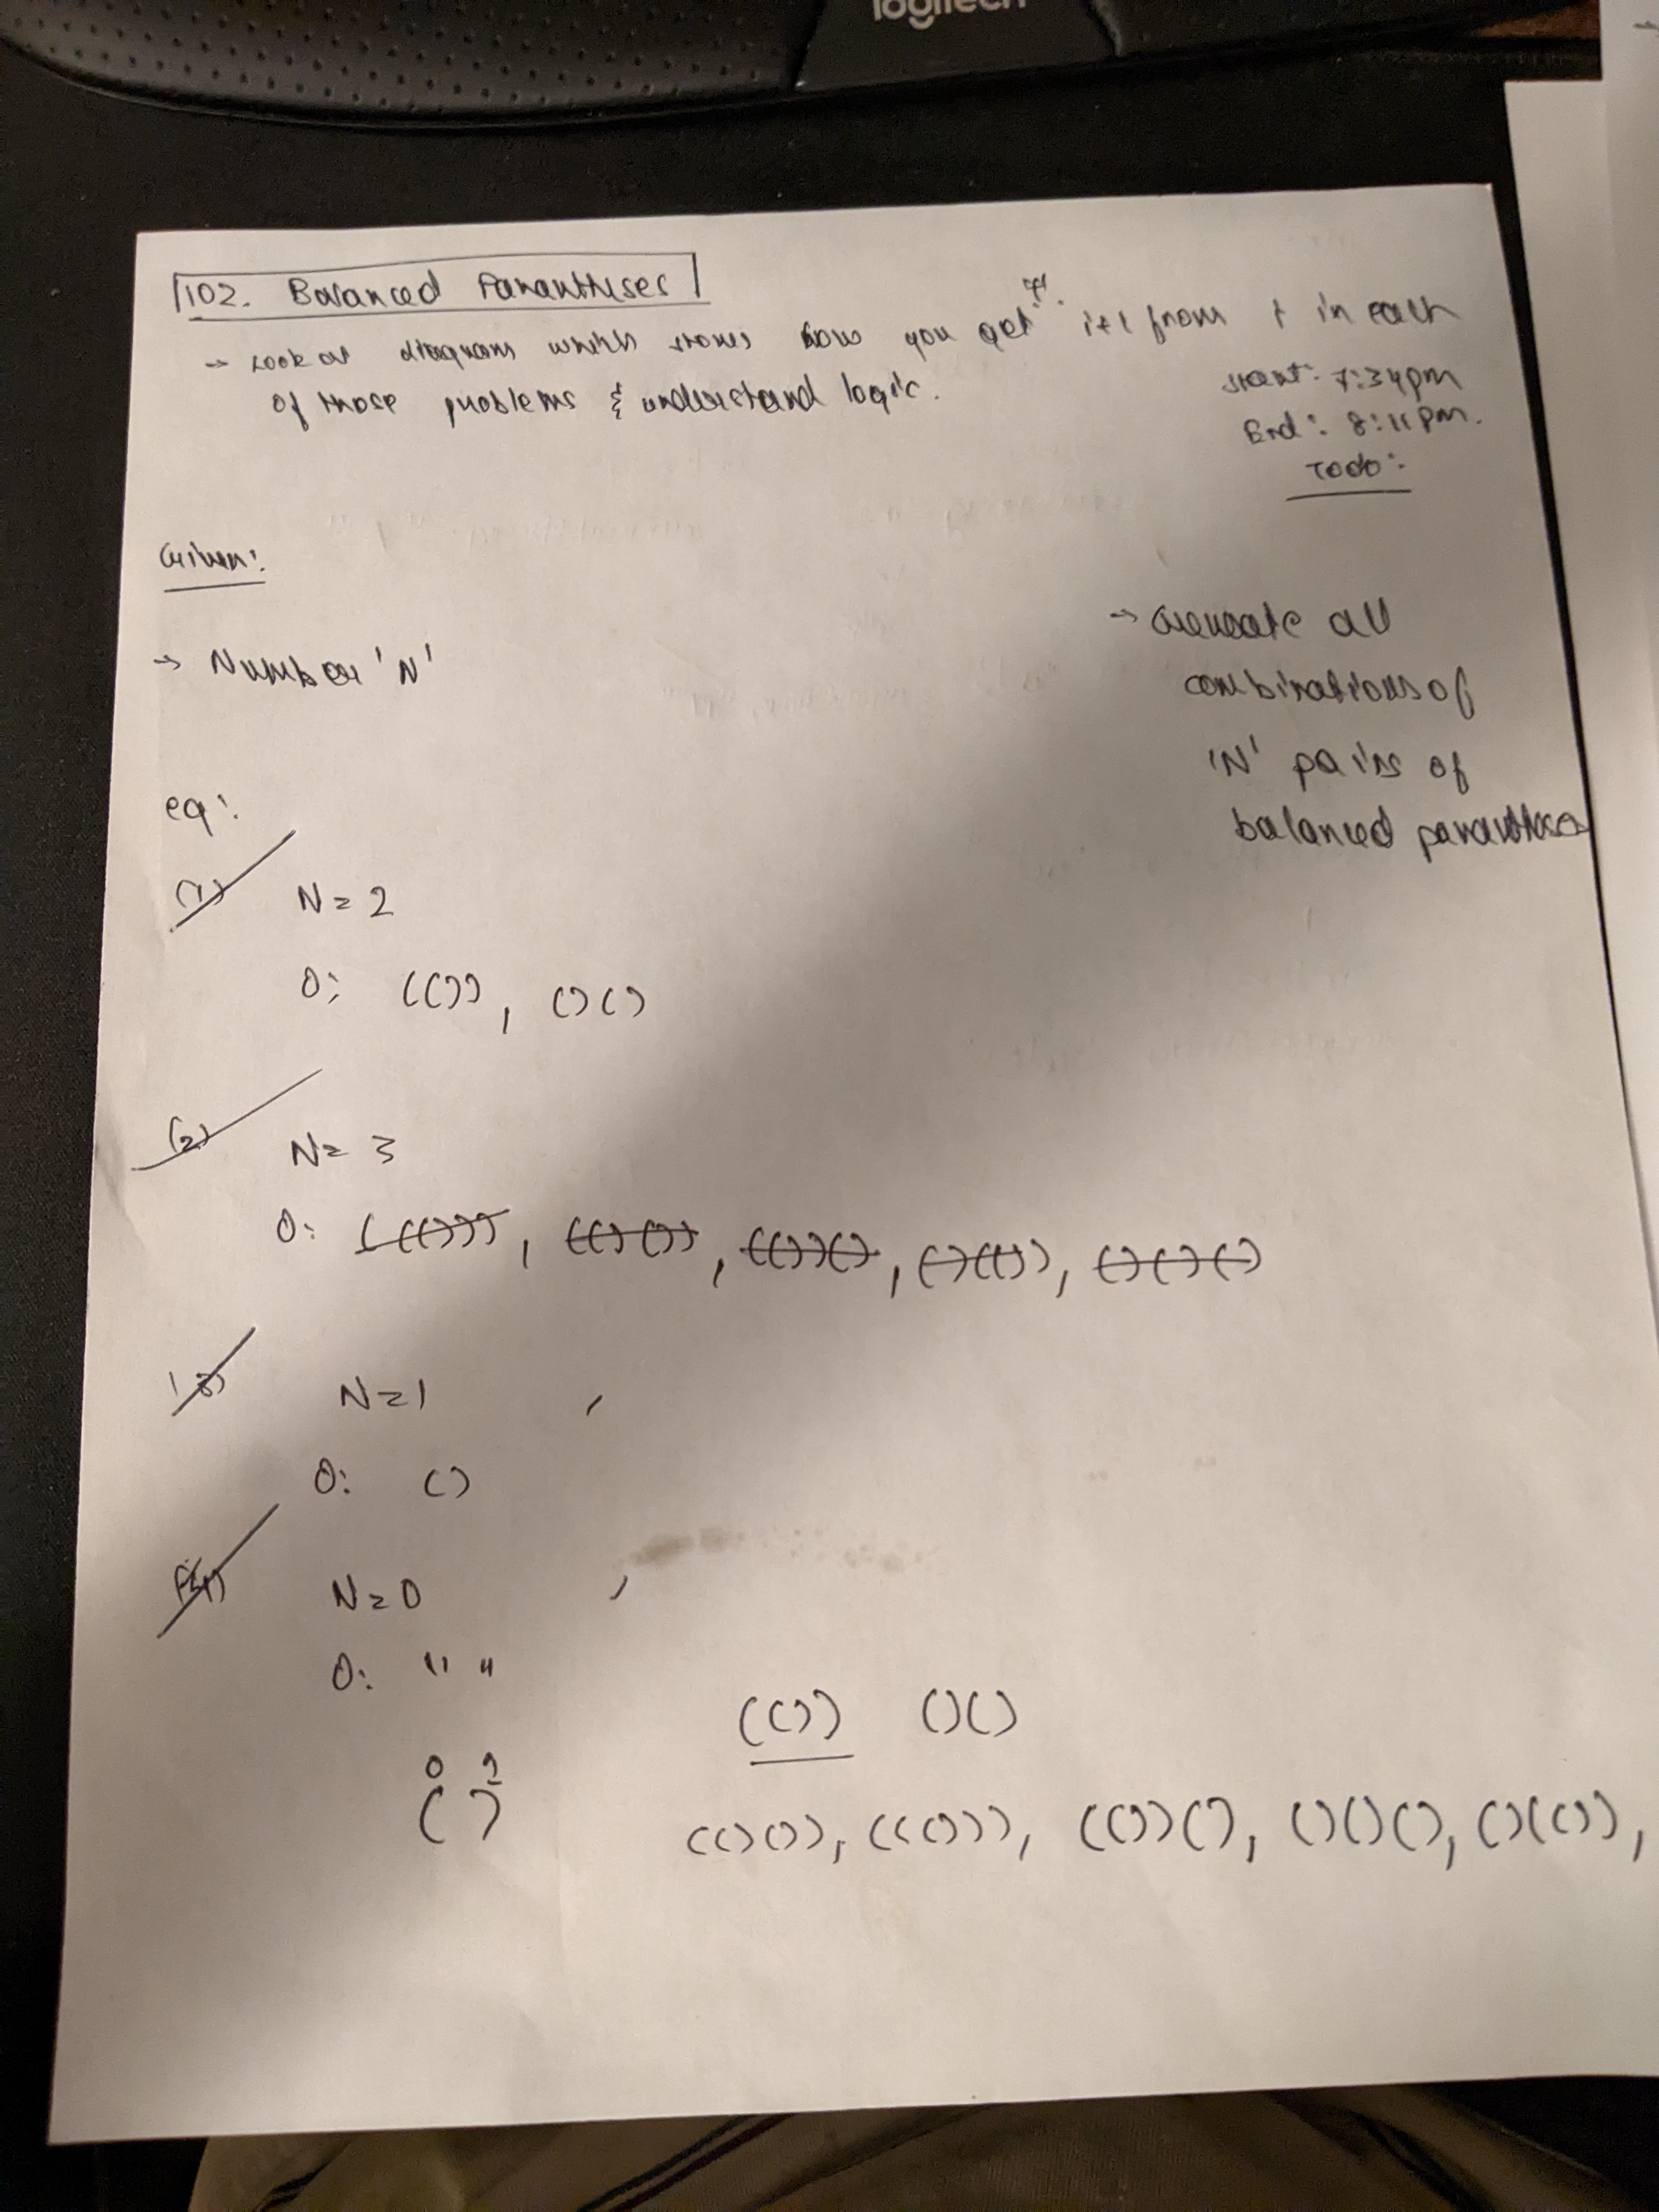 logitech
102. Balanced Parantheses
→ Look at diagram which shows how you get i+1 from i in each
of those problems & understand logic.
Start: 7:34pm
End: 8:11pm.
Todo:
Given:
→ Number 'N'
→ Generate all
combinations of
'N' pairs of
balanced parantheses
eg:
(1) N = 2
O: (()), ()()
(2) N = 3
O: ((())), (()()), (())(), ()(()), ()()()
(3) N=1
O: ()
(4) N=0
O: " "
(()) ()()
0 1
( )
(()()), ((())), (())(), ()()(), ()(()),